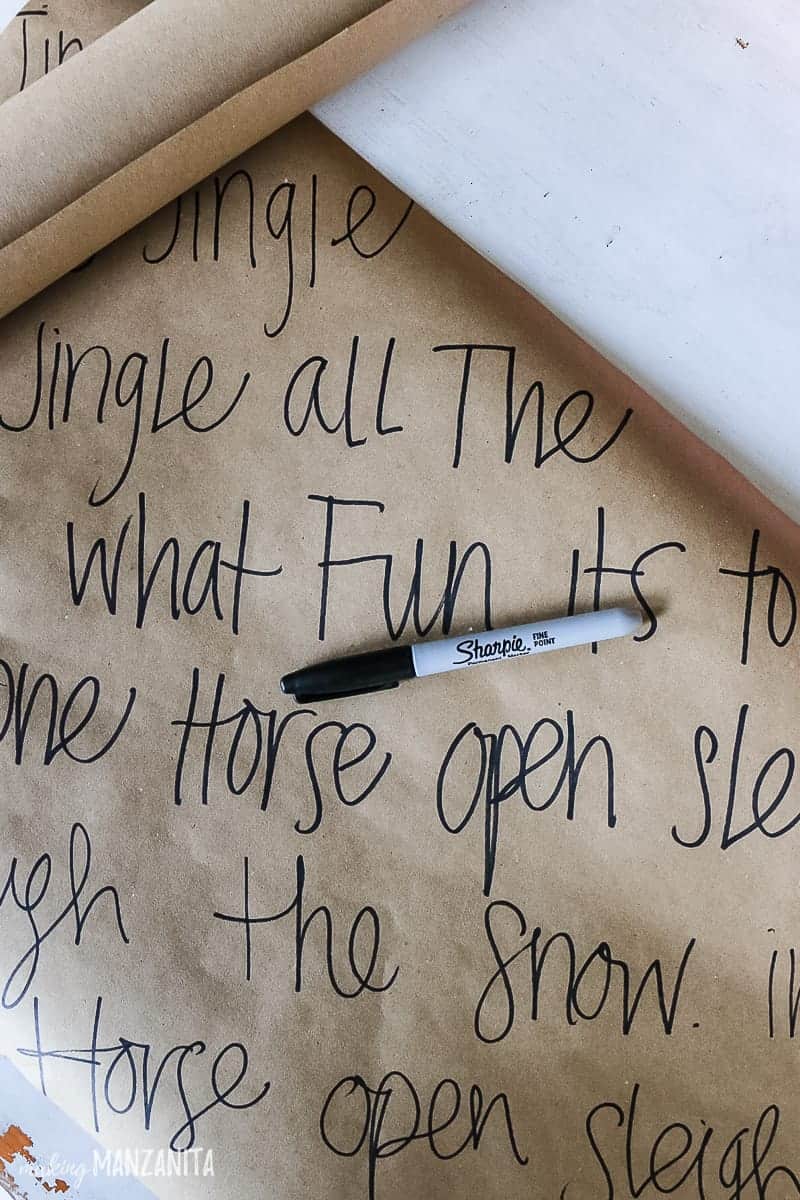 Jin
Jingle
Jingle all The
what Fun its to
one Horse open sle
ugh the snow. in
Horse open sleigh
Sharpie. FINE POINT
making MANZANITA